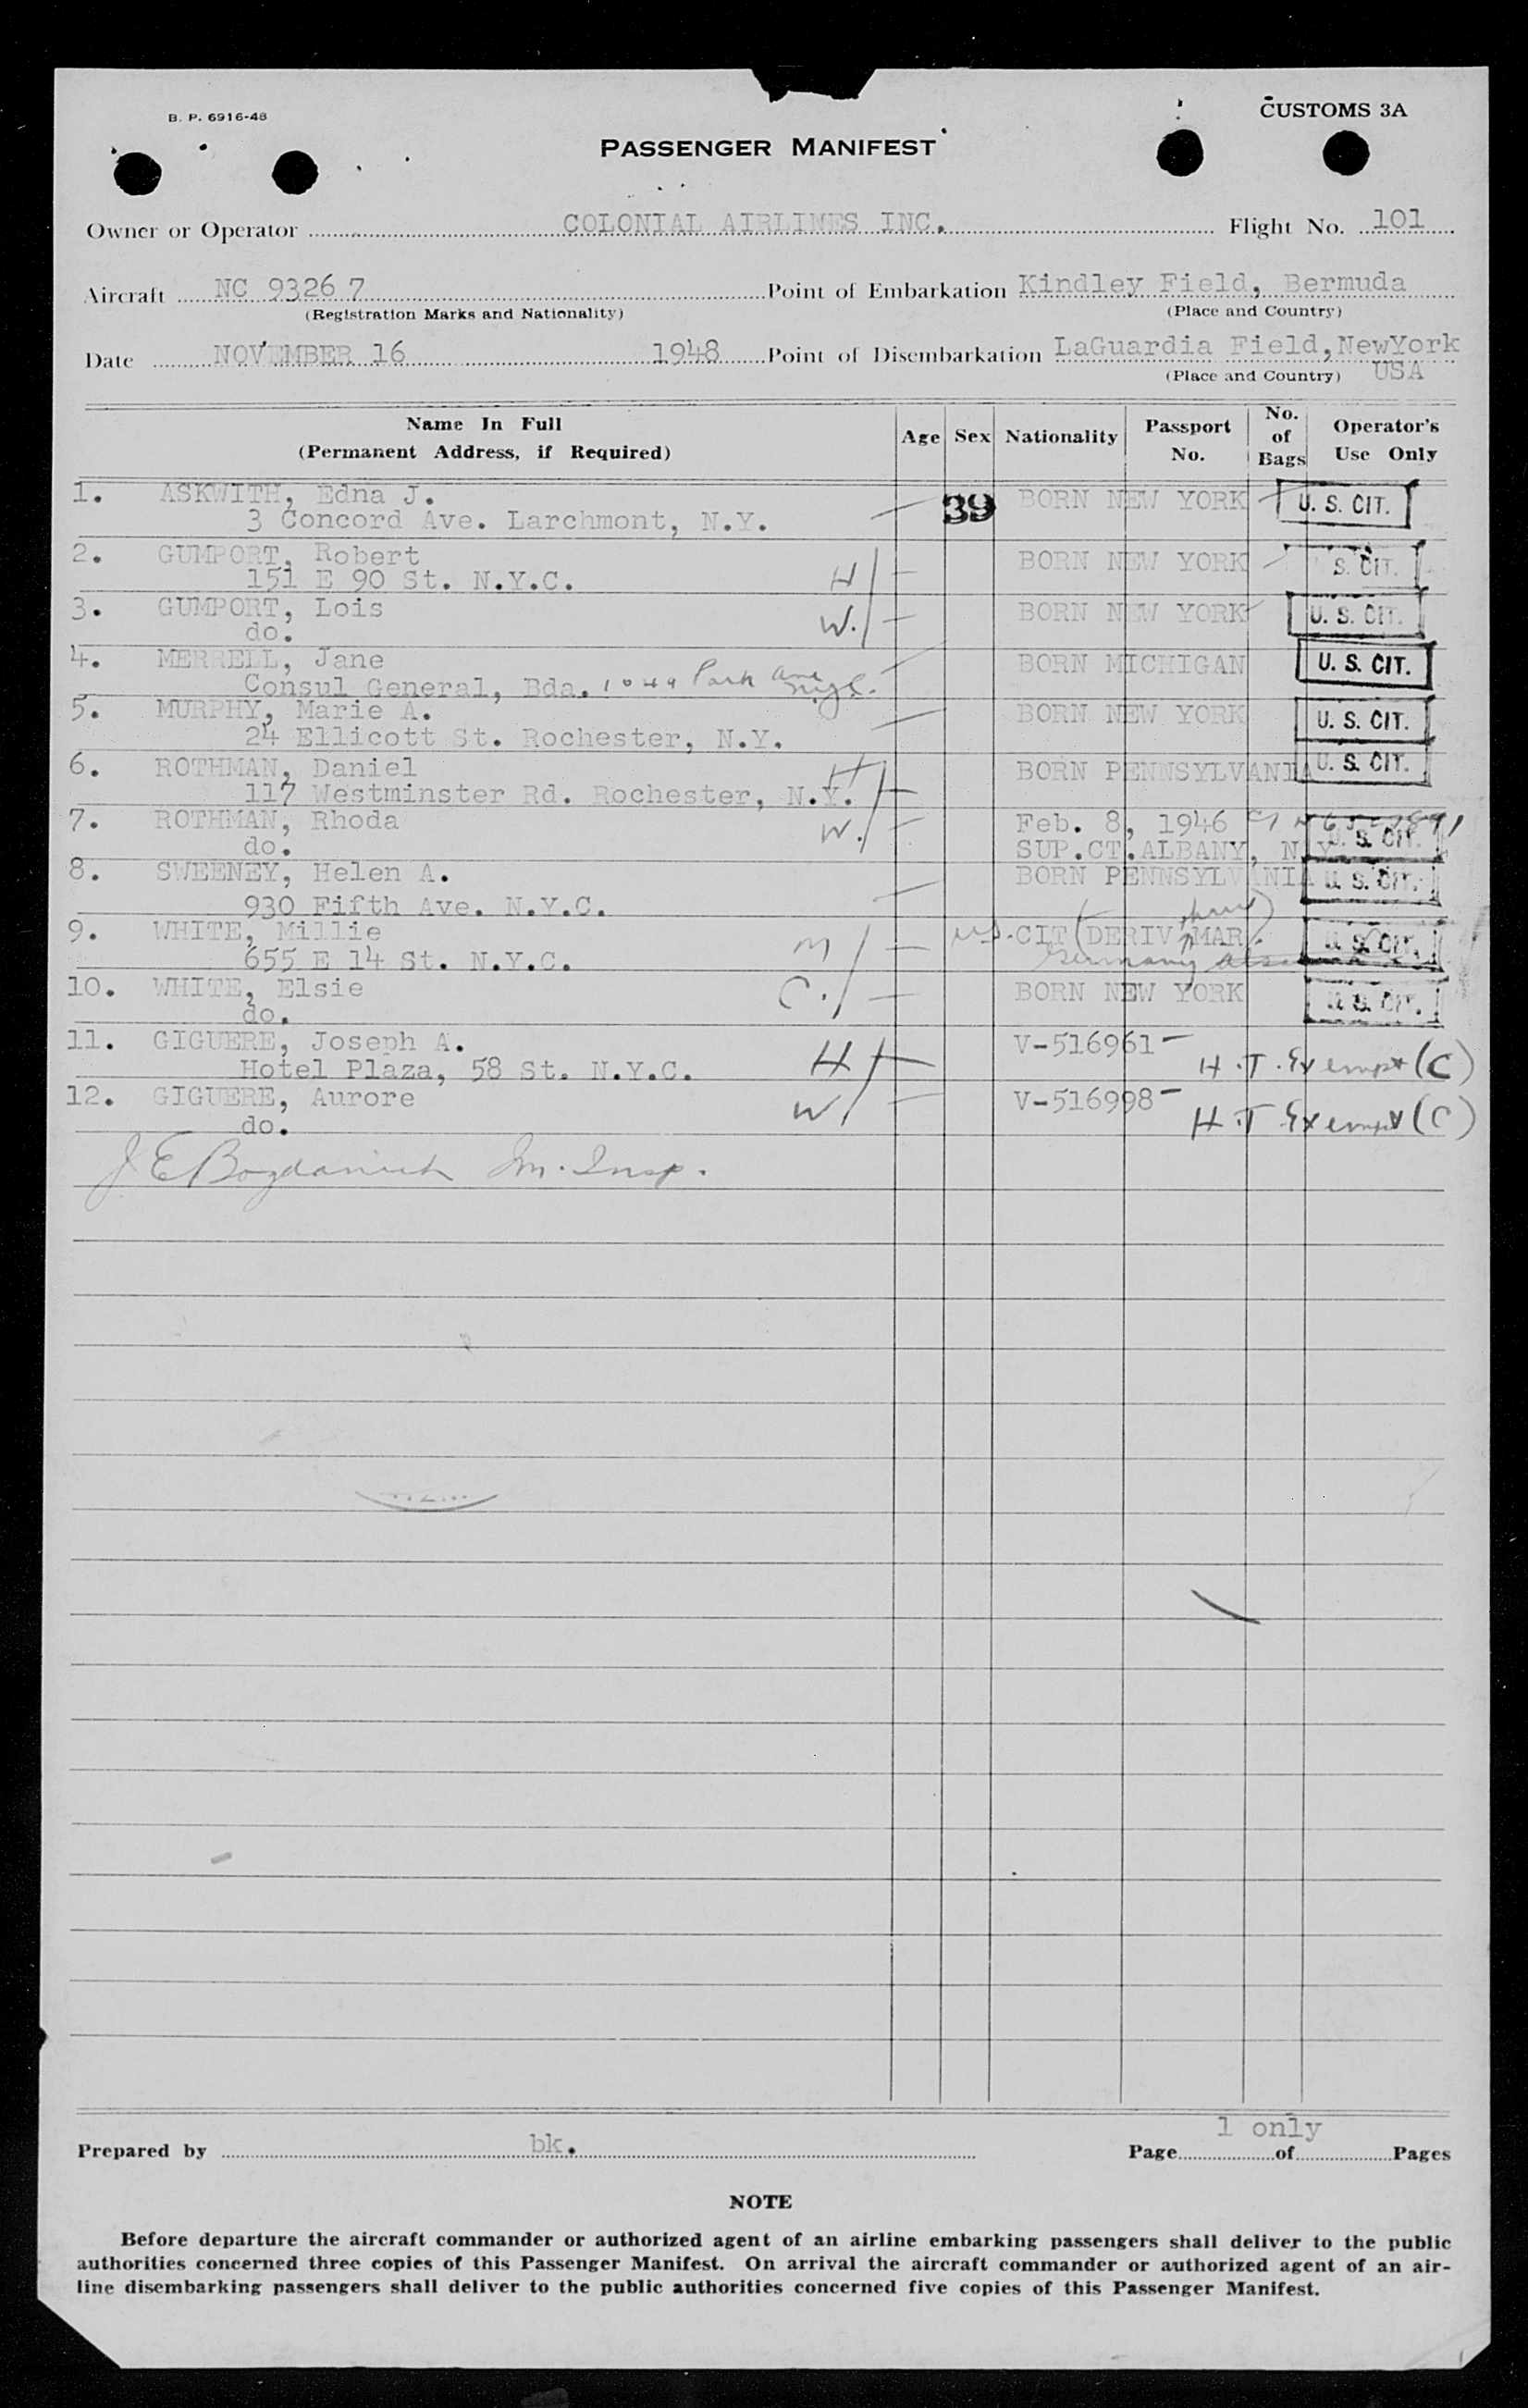 B. P. 6916-48
CUSTOMS 3A
PASSENGER MANIFEST
Owner or Operator COLONIAL AIRLINES INC. Flight No. 101
Aircraft NC 93267 Point of Embarkation Kindley Field, Bermuda
(Registration Marks and Nationality) (Place and Country)
Date NOVEMBER 16 1948 Point of Disembarkation LaGuardia Field, NewYork
(Place and Country) USA
Name In Full (Permanent Address, if Required) Age Sex Nationality Passport No. No. of Bags Operator's Use Only
1. ASKWITH, Edna J. 39 BORN NEW YORK U. S. CIT.
3 Concord Ave. Larchmont, N.Y.
2. GUMPORT, Robert BORN NEW YORK S. CIT.
151 E 90 St. N.Y.C. H
3. GUMPORT, Lois BORN NEW YORK U. S. CIT.
do. W.
4. MERRELL, Jane BORN MICHIGAN U. S. CIT.
Consul General, Bda. 1049 Park Ave NYC.
5. MURPHY, Marie A. BORN NEW YORK U. S. CIT.
24 Ellicott St. Rochester, N.Y.
6. ROTHMAN, Daniel H BORN PENNSYLVANIA U. S. CIT.
117 Westminster Rd. Rochester, N.Y.
7. ROTHMAN, Rhoda W. Feb. 8, 1946
do. SUP.CT.ALBANY, N.Y. U. S. CIT.
8. SWEENEY, Helen A. BORN PENNSYLVANIA U. S. CIT.
930 Fifth Ave. N.Y.C.
9. WHITE, Millie M U.S. CIT (DERIV MAR). U. S. CIT.
655 E 14 St. N.Y.C. Germany
10. WHITE, Elsie C. BORN NEW YORK U. S. CIT.
do.
11. GIGUERE, Joseph A. H V-516961-
Hotel Plaza, 58 St. N.Y.C. H.T. Exempt (C)
12. GIGUERE, Aurore W V-516998-
do. H.T Exempt (C)
J E Bogdanich Im. Insp.
1 only
Prepared by bk. Page of Pages
NOTE
Before departure the aircraft commander or authorized agent of an airline embarking passengers shall deliver to the public
authorities concerned three copies of this Passenger Manifest. On arrival the aircraft commander or authorized agent of an air-
line disembarking passengers shall deliver to the public authorities concerned five copies of this Passenger Manifest.